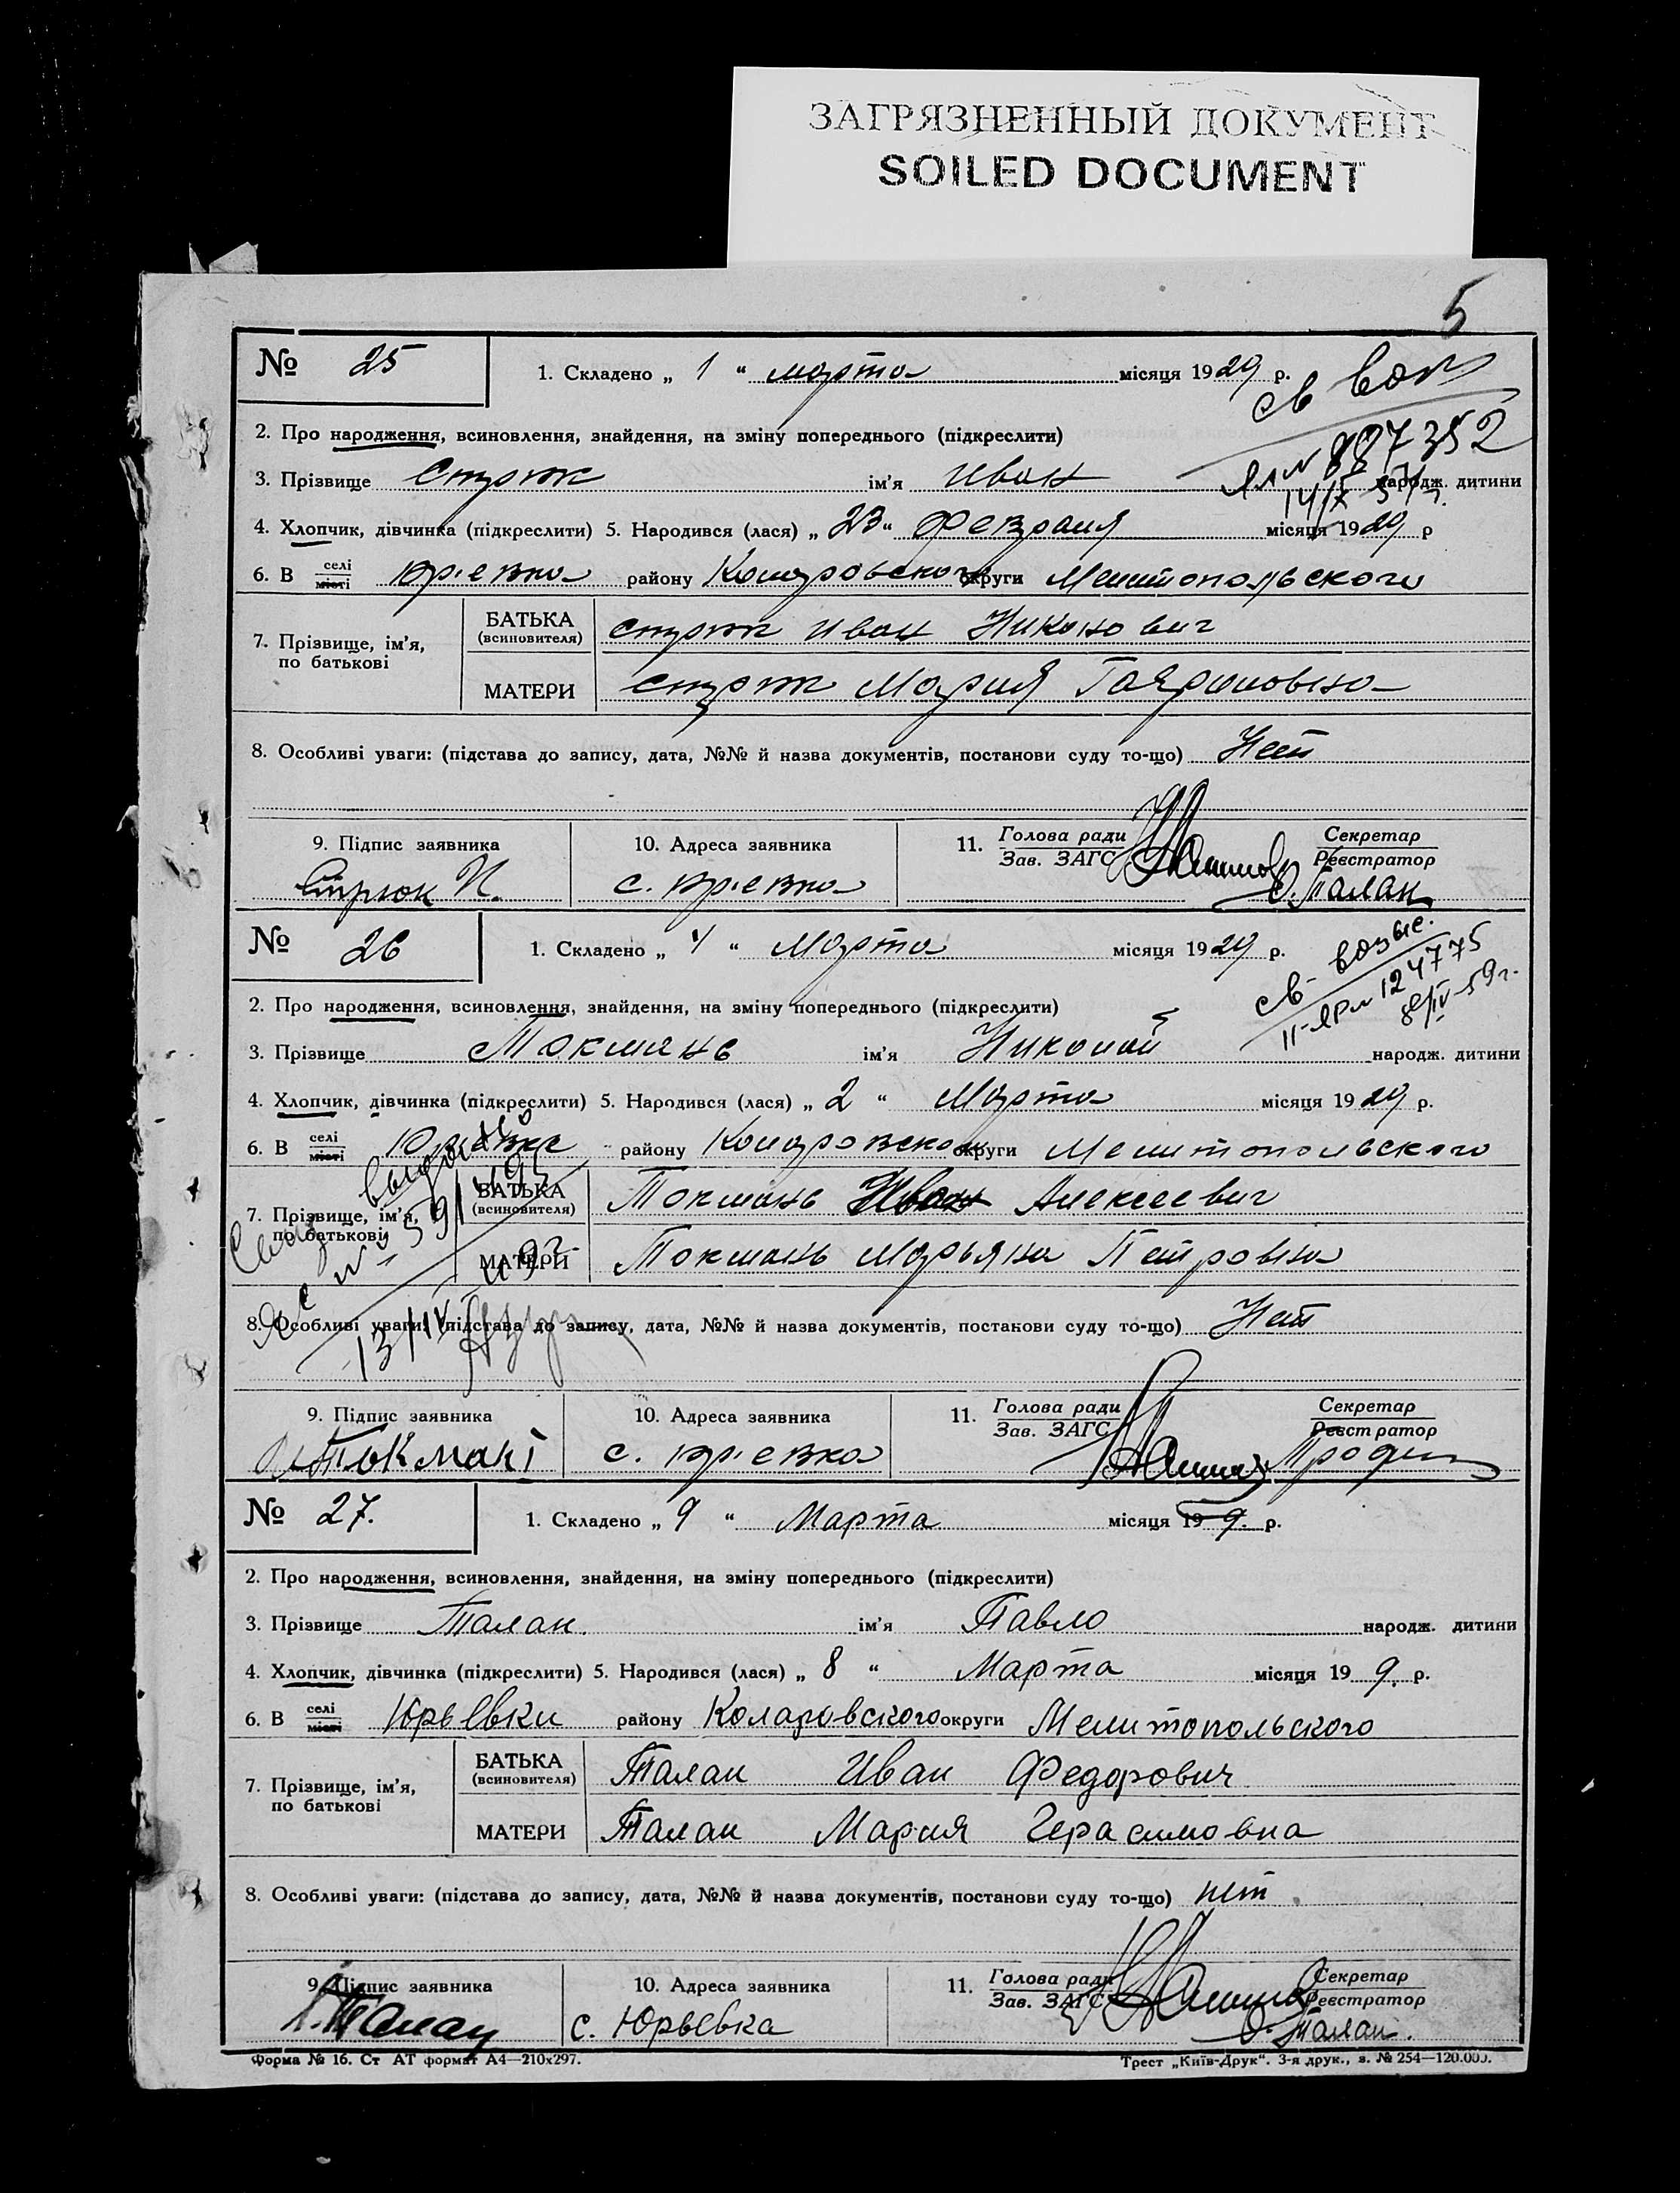 ЗАГРЯЗНЕННЫЙ ДОКУМЕНТ
SOILED DOCUMENT
5
№ 25
1. Складено „ 1 “ марта місяця 1929 р.
св воз
2. Про народження, всиновлення, знайдення, на зміну попереднього (підкреслити)
ЯЛ № 887352
3. Прізвище Стрюк ім'я Иван народж. дитини
4. Хлопчик, дівчинка (підкреслити) 5. Народився (лася) „ 23 “ Февраля місяця 1929 р
6. В селі місті Юрʼевка району Коларовского округи Мелитопольского
7. Прізвище, ім'я, по батькові
БАТЬКА (всиновителя) Стрюк Иван Никонович
МАТЕРИ Стрюк Мария
8. Особливі уваги: (підстава до запису, дата, №№ й назва документів, постанови суду то-що) Нет
9. Підпис заявника
10. Адреса заявника
11. Голова ради Зав. ЗАГС
Секретар Реєстратор
Стрюк И.
с. Юрʼевка
О. Талан
№ 26
1. Складено „ 4 “ Марта місяця 1929 р.
св- возвр.
II-ЯР № 124775
8/IV-59г.
2. Про народження, всиновлення, знайдення, на зміну попереднього (підкреслити)
3. Прізвище Токмань ім'я Николай народж. дитини
4. Хлопчик, дівчинка (підкреслити) 5. Народився (лася) „ 2 “ Марта місяця 1929 р.
6. В селі місті Юрʼевке району Коларовского округи Мелитопольского
7. Прізвище, ім'я, по батькові
БАТЬКА (всиновителя) Токмань Иван Алексеевич
МАТЕРИ Токмань Марьяна Петровна
8. Особливі уваги: (підстава до запису, дата, №№ й назва документів, постанови суду то-що) Нет
9. Підпис заявника
10. Адреса заявника
11. Голова ради Зав. ЗАГС
Секретар Реєстратор
с. Юрʼевка
№ 27.
1. Складено „ 9 “ Марта місяця 19 9. р.
2. Про народження, всиновлення, знайдення, на зміну попереднього (підкреслити)
3. Прізвище Талан. ім'я Павло народж. дитини
4. Хлопчик, дівчинка (підкреслити) 5. Народився (лася) „ 8 “ Марта місяця 19 9. р.
6. В селі місті Юрьевки району Коларовского округи Мелитопольского
7. Прізвище, ім'я, по батькові
БАТЬКА (всиновителя) Талан Иван Федорович
МАТЕРИ Талан Мария Герасимовна
8. Особливі уваги: (підстава до запису, дата, №№ й назва документів, постанови суду то-що) нет
9. Підпис заявника
10. Адреса заявника
11. Голова ради Зав. ЗАГС
Секретар Реєстратор
Талан
с. Юрьевка
О. Талан.
Форма № 16. Ст АТ формат А4—210х297.
Трест „Київ-Друк“. 3-я друк., з. № 254—120.000.